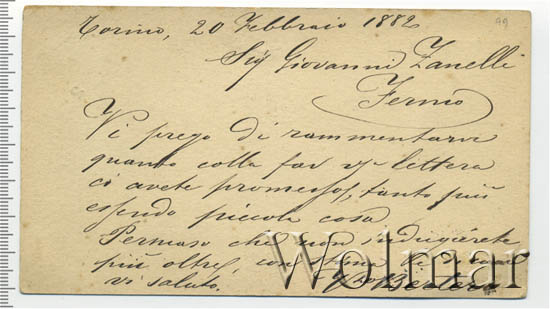 Torino, 20 Febbraio 1882
99
Sig Giovanni Zanelli
Fermo
Vi prego di rammentarvi
quanto colla fav vs lettera
ci avete promesso, tanto più
essendo piccola cosa
Persuaso che non indugierete
più oltre, con stima
vi saluto.
Wolmar